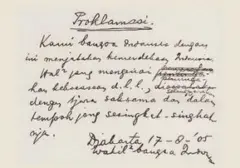 Proklamasi.
Kami bangsa Indonesia dengan
ini menjatakan kemerdekaan Indonesia.
Hal² jang mengenai
kekoeasaan d.l.l.,
dengan tjara saksama dan dalam
tempoh jang sesingkat-singkat
nja.
Djakarta 17-8-'05
Wakil² bangsa Indon